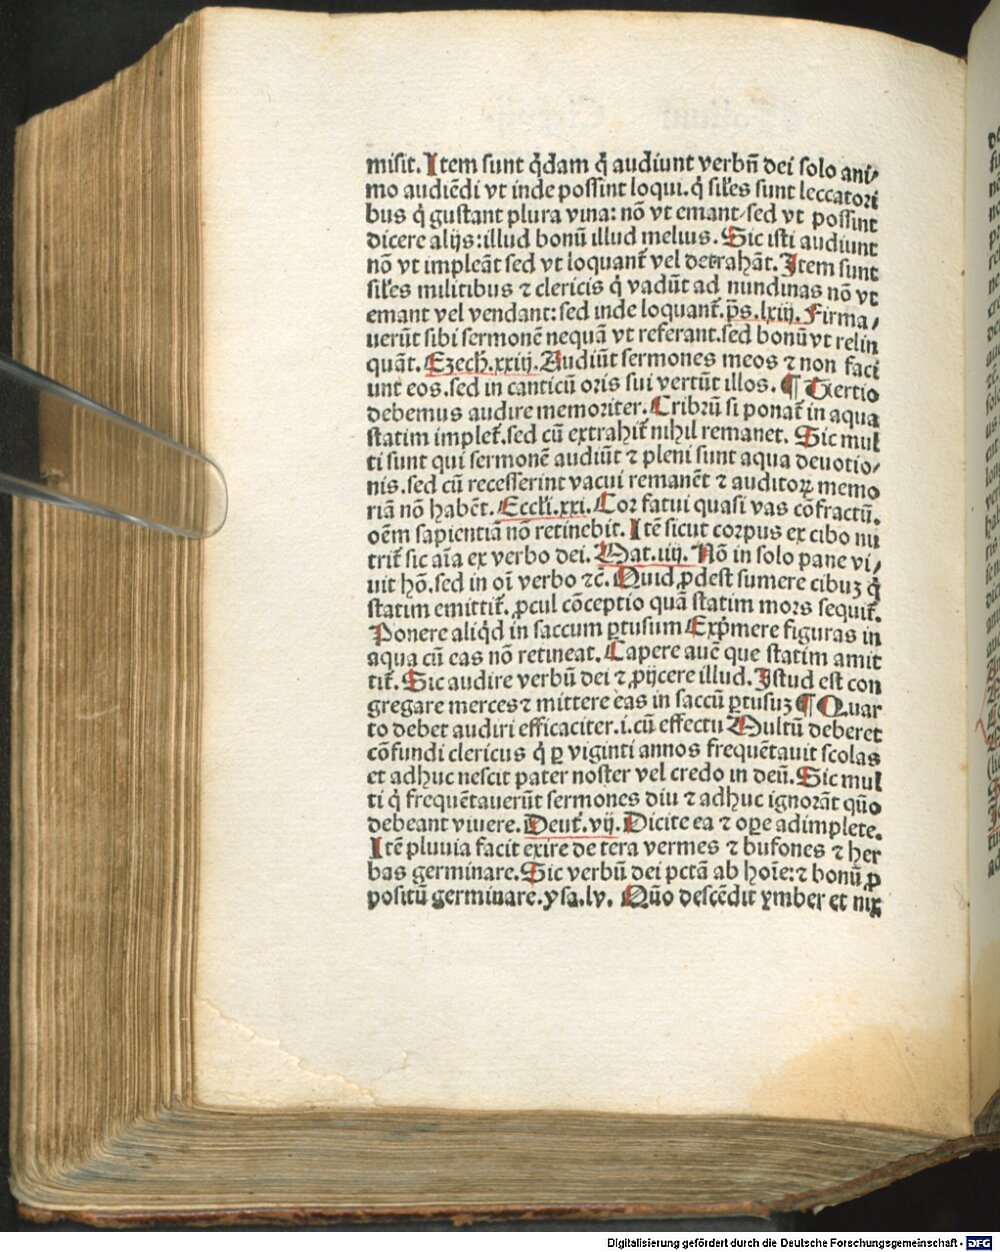 misit. Item sunt q̇dam q̇ audiunt verbū dei solo ani⸗
mo audiēdi vt inde possint loqui. q̇ siles sunt leccatori
bus q̇ gustant plura vina: nō vt emant/sed vt possint
dicere alijs: illud bonū illud melius. Sic isti audiunt
nō vt impleāt sed vt loquant̃ vel detrahāt. Item sunt
siłes militibus ⁊ clericis q̇ vadūt ad nundinas nō vt
emant vel vendant: sed inde loquant̃. p̄s. lxiij. Firma⸗
uerūt sibi sermonē nequā vt referant. sed bonū vt relin
quāt. Ezech. xxiij. Audiūt sermones meos ⁊ non faci
unt eos. sed in canticū oris sui vertūt illos. ¶ Tertio
debemus audire memoriter. Cribrū si ponat̃ in aqua
statim implet̃. sed cū extrahit̃ nihil remanet. Sic mul
ti sunt qui sermonē audiūt ⁊ pleni sunt aqua deuotio⸗
nis. sed cū recesserint vacui remanēt ⁊ auditoꝝ memo
riā nō habēt. Eccli. xxi. Cor fatui quasi vas cōfractū.
oēm sapientiā nō retinebit. Itē sicut corpus ex cibo nu
trit̃ sic aīa ex verbo dei. Mat. iiij. Nō in solo pane vi⸗
uit hō. sed in oī verbo ⁊c̄. Quid ꝓdest sumere cibuʒ q̇
statim emittit̃. ꝓcul cōceptio quā statim mors sequit̃.
Ponere aliq̇d in saccum ꝑtusum Exp̄mere figuras in
aqua cū eas nō retineat. Capere auē que statim amit
tit̃. Sic audire verbū dei ⁊ ꝓijcere illud. Istud est con
gregare merces ⁊ mittere eas in saccū ꝑtusuʒ ¶ Quar
to debet audiri efficaciter. i. cū effectu Multū deberet
cōfundi clericus q̇ ꝑ viginti annos frequētauit scolas
et adhuc nescit pater noster vel credo in deū. Sic mul
ti q̇ frequētauerūt sermones diu ⁊ adhuc ignorāt quō
debeant viuere. Deut̃. vij. Dicite ea ⁊ oꝑe adimplete.
Itē pluuia facit exire de tera vermes ⁊ bufones ⁊ her
bas germinare. Sic verbū dei pctā ab hoīe: ⁊ bonū ꝓ
positū germinare. ysa. lv. Quō descēdit ymber et nix
Digitalisierung gefördert durch die Deutsche Forschungsgemeinschaft - DFG